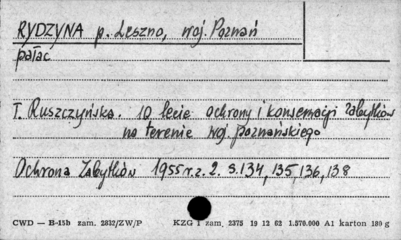 RYDZYNA p. Leszno, woj. Poznań
pałac
T. Ruszczyńska. 10 lecie ochrony i konserwacji zabytków
na terenie woj. poznańskiego
Ochrona Zabytków 1955 r. z. 2. s. 134, 135, 136, 138
CWD — B-15b zam. 2832/ZW/P KZG 1 zam. 2375 19 12 62 1.570.000 A1 karton 180 g